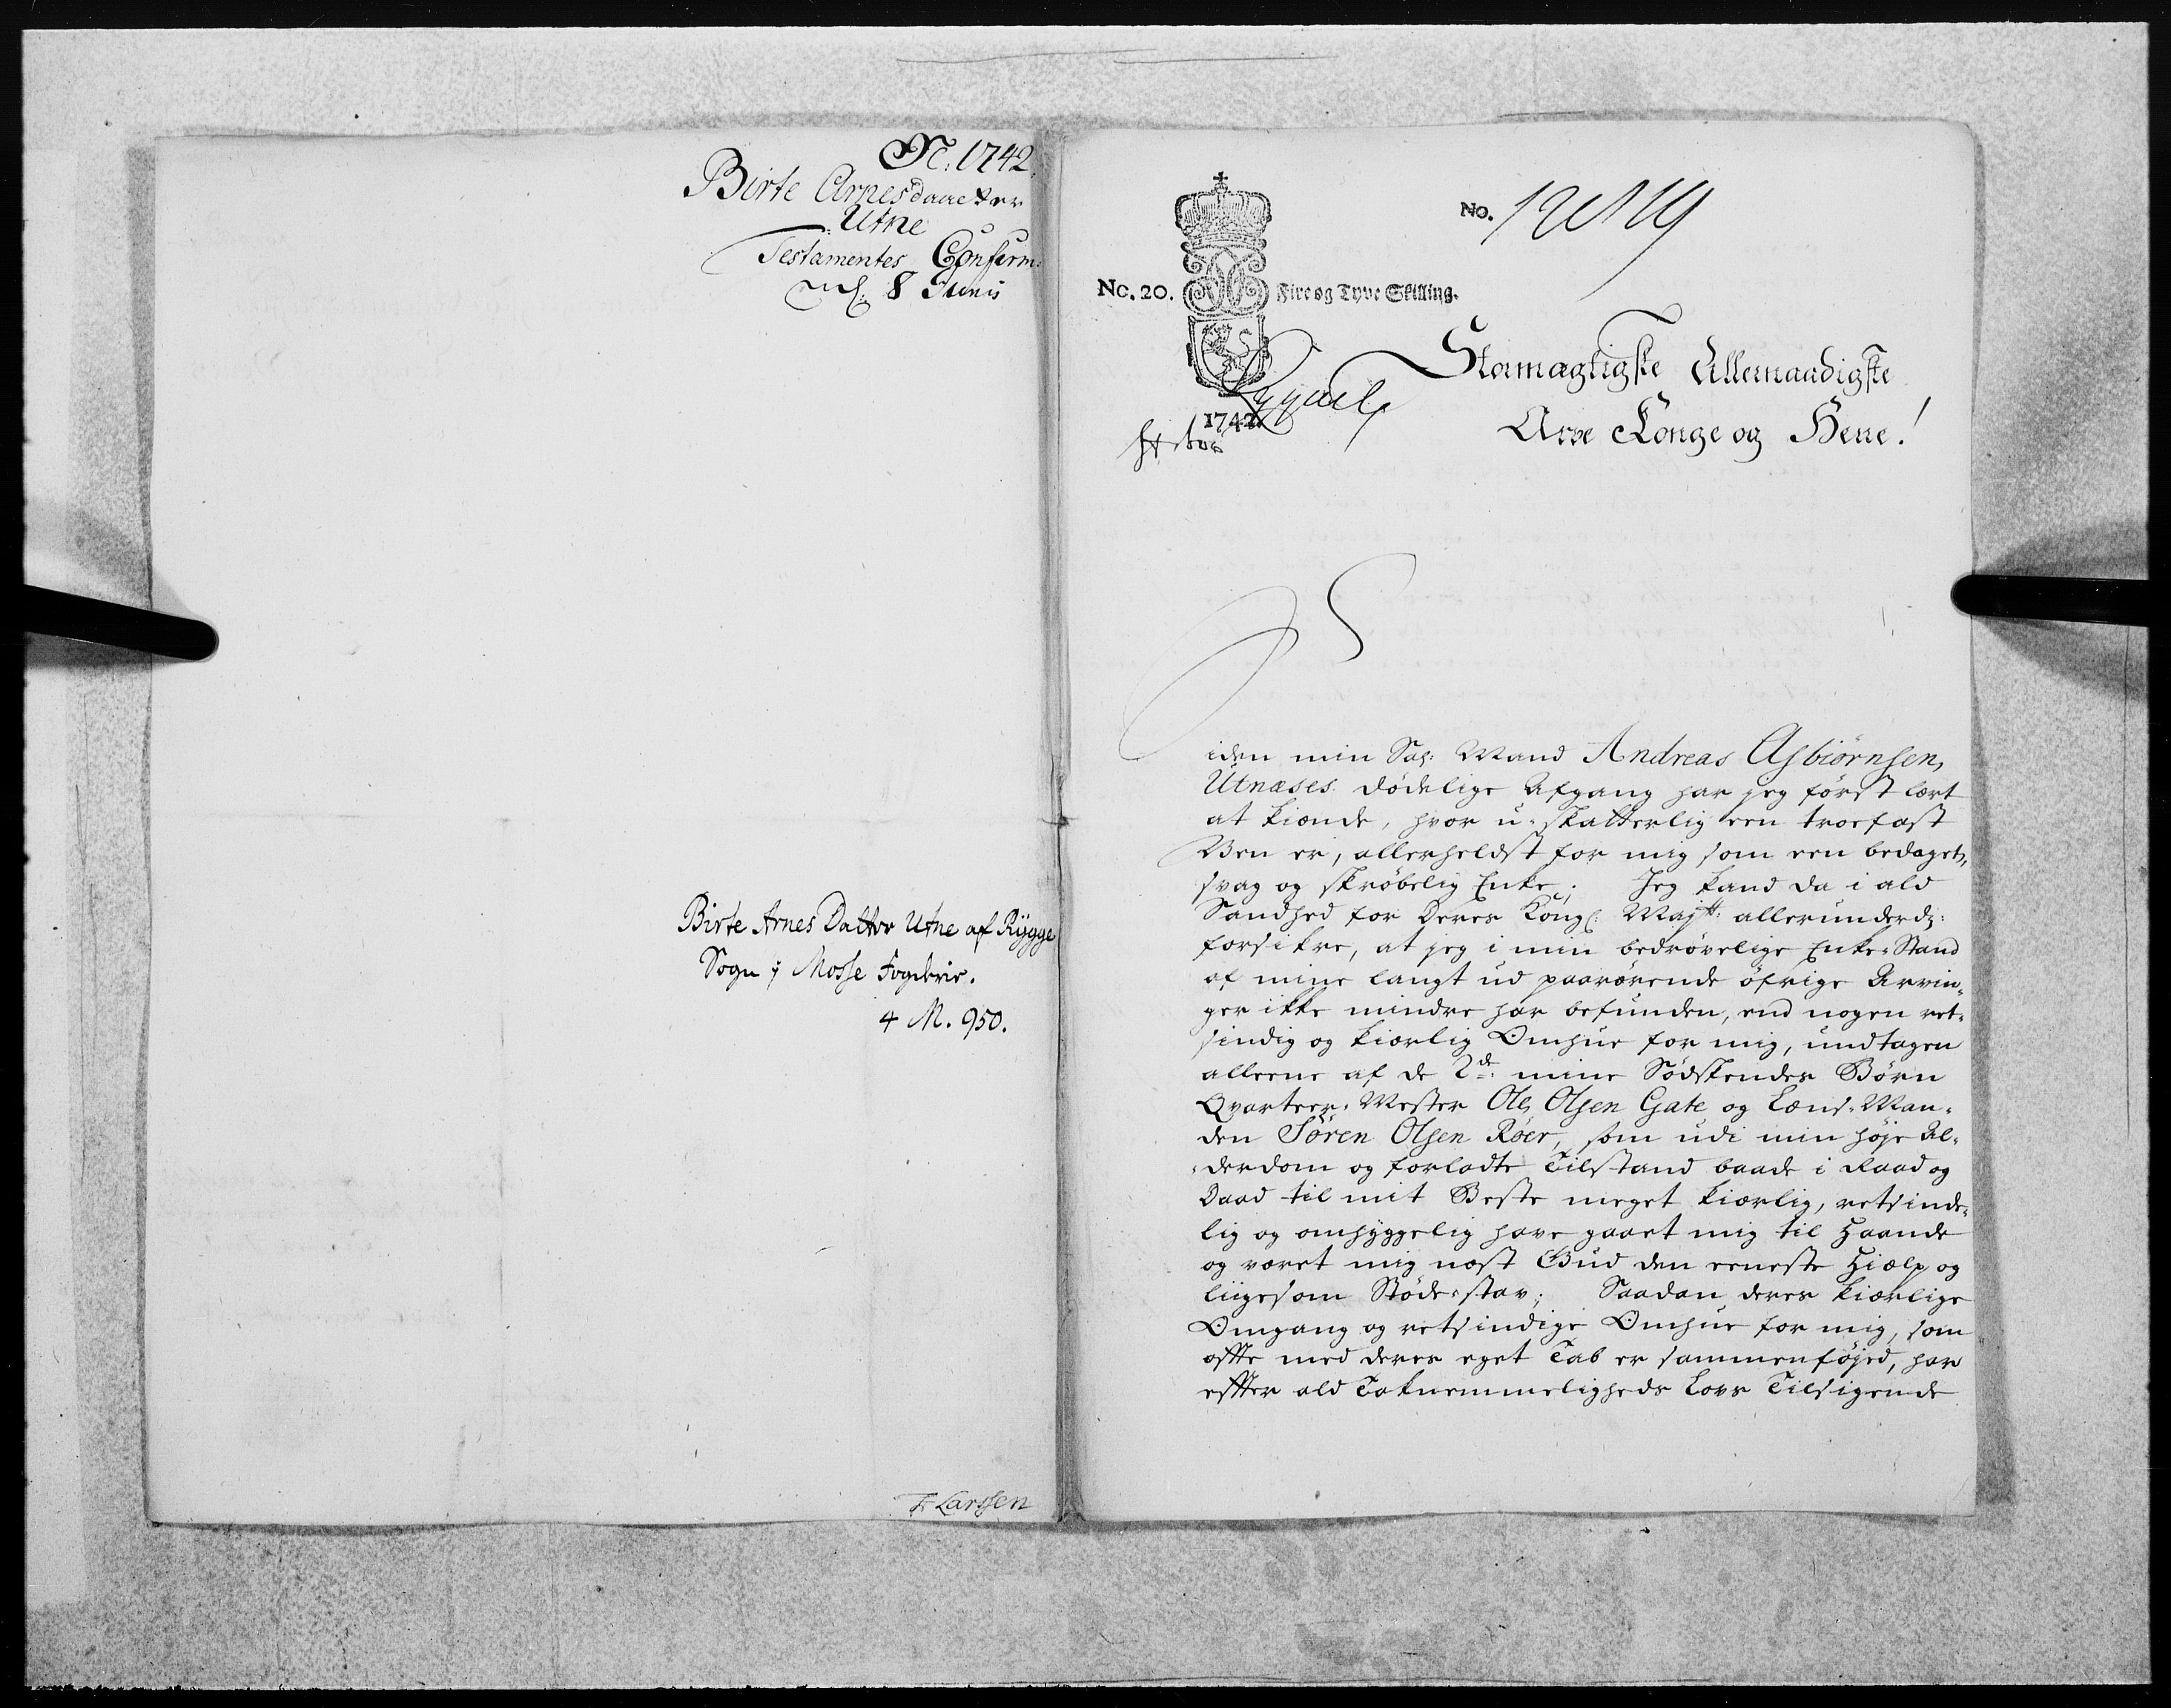 Nr. 1742.
Birte Arnesdaatter
Utne
Testamentes Confirm:
8 Junii
Birte Arnes Datter Utne af Rygge
Sogn i Mosse Fogderie.
4 M. 950.
Larssen
No.
No. 20. Fire og Tyve Skilling.
1742
Stormægtigste Allernaadigste
Arve Konge og Herre!
S
iden min Sal: Mand Andreas Asbiørnsen,
Utnæses dødelige Afgang har jeg først lært
at kiende, hvor u-skatterlig een troefast
Ven er, allerheldst for mig som een bedaget,
svag og skrøbelig Enke; Jeg kand da i ald
Sandhed for Deres Kongl: Majtt: allerunderdg:
forsikre, at jeg i min bedrøvelige Enke-Stand
af mine langt ud paarørende øfrige Arvin-
ger ikke mindre har befunden, end nogen ret-
sindig og kierlig Omhue for mig, undtagen
alleene af de 2de: mine Sødskendes Børn
Qvarteer-Mester Ole Olsen Gate og Læns-Man-
den Søren Olsen Røer, som udi min høje Al-
derdom og forladte Tilstand baade i Raad og
Daad til mit Beste meget kiærlig, retsinde-
lig og omhyggelig have gaaet mig til Haande
og været mig næst Gud den eeneste Hielp og
liigesom Støde-stav; Saadan deres kiærlige
Omgang og retsindige Omhue for mig, som
offte med deres eget Tab er sammenføjed, har
effter ald Taknemmeligheds Lovs Tilsigende